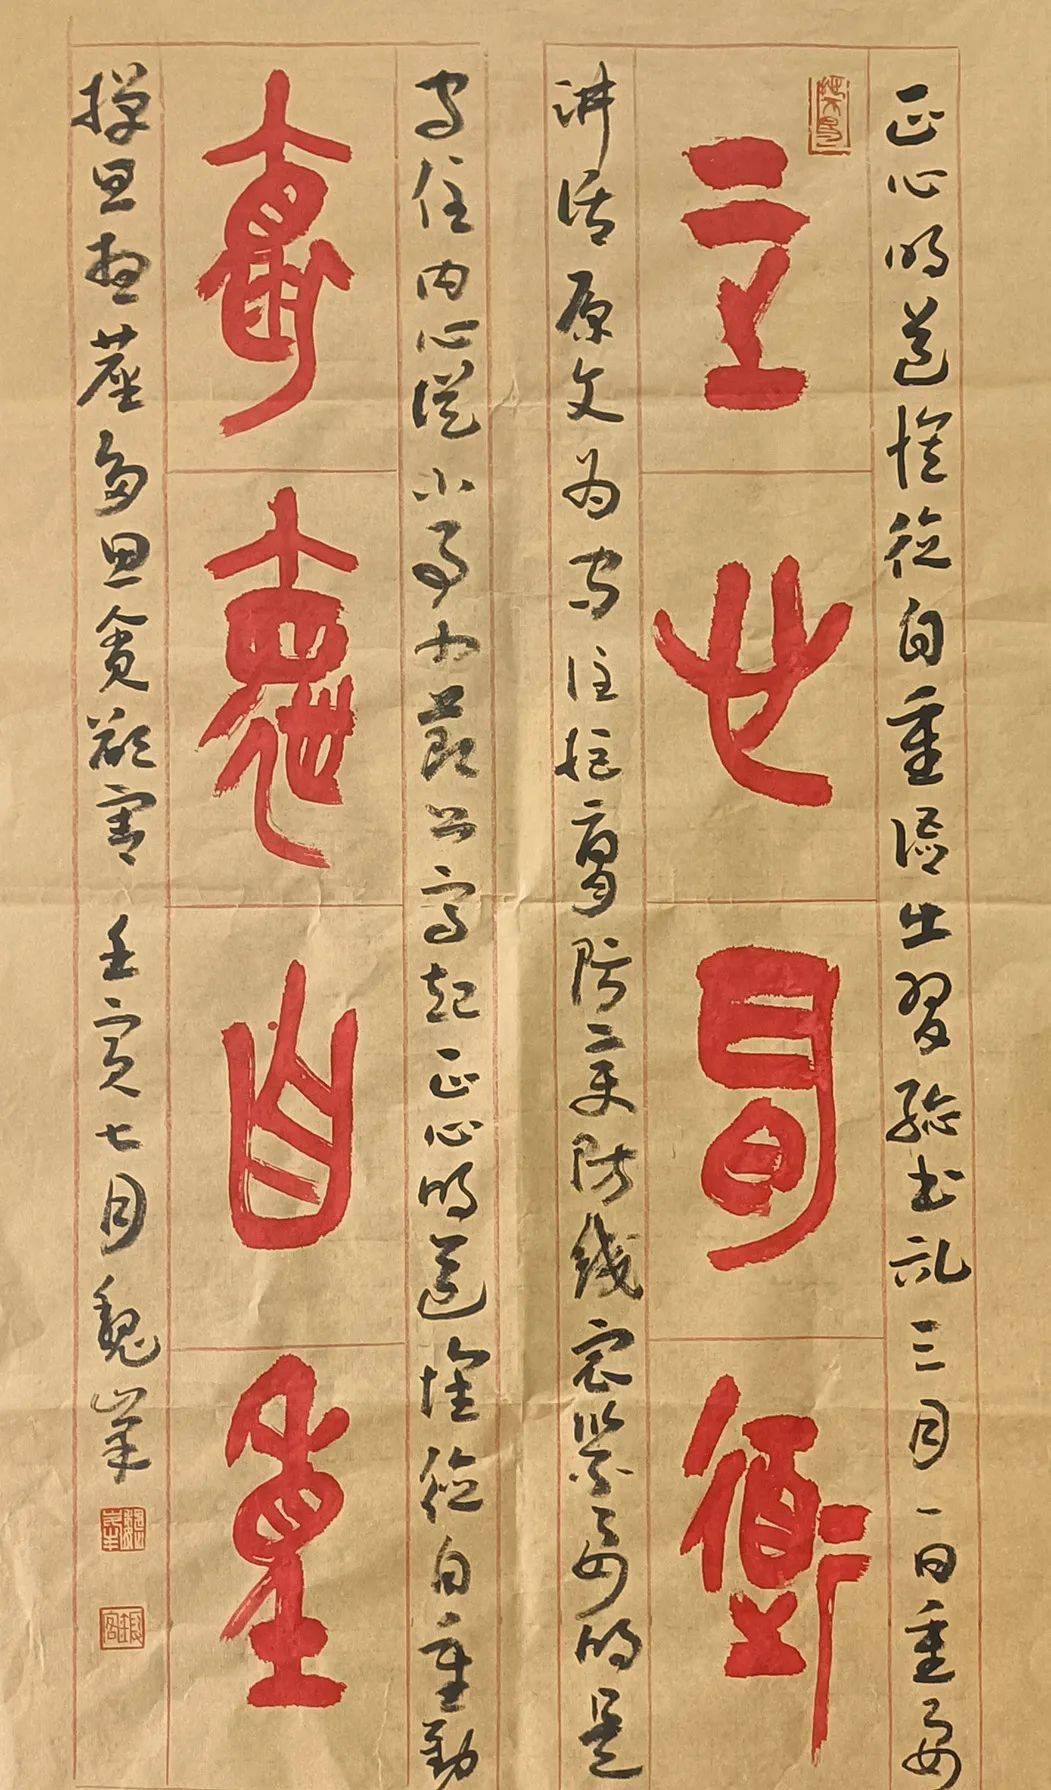 正心明道怀德自重语出习总书记三月一日重要
正心明道
讲话原文为守住拒腐防变防线最紧要的是
守住内心从小事小节上守起正心明道怀德自重勤
怀德自重
掸思想尘多思贪欲害壬寅七月魏峯